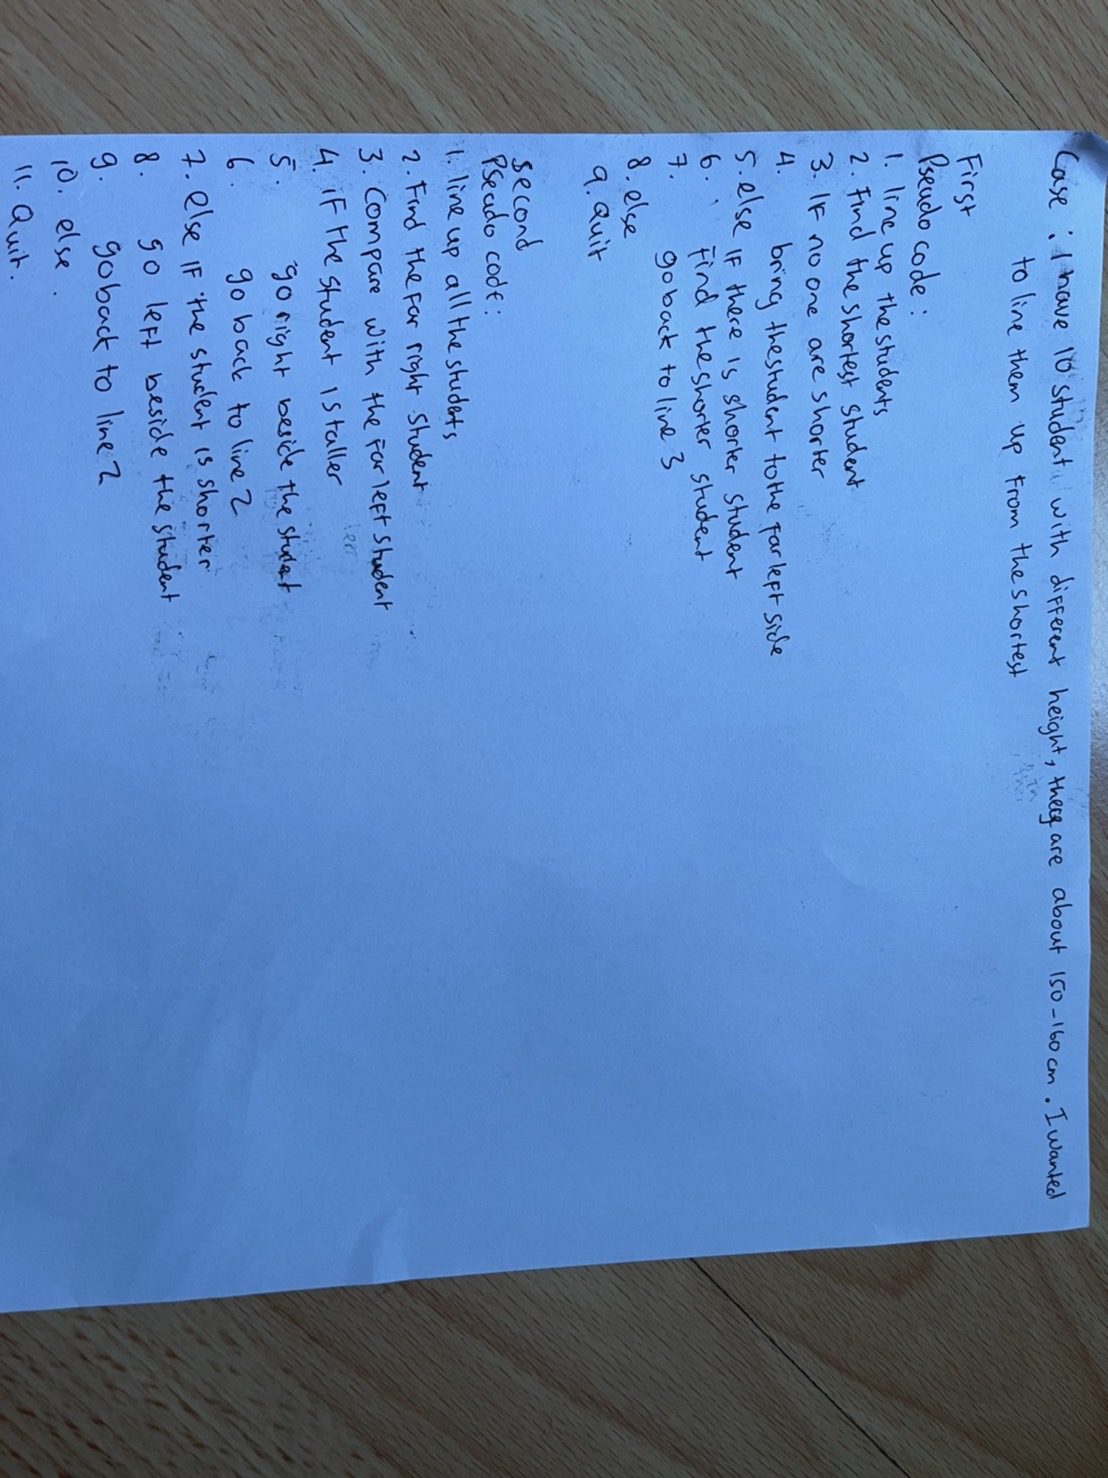 Case : I have 10 student with different height, there are about 150-160 cm. I wanted
to line them up from the shortest
First
Pseudo code :
1. line up the students
2. Find the shortest student
3. IF no one are shorter
4. bring the student to the far left side
5. else IF there is shorter student
6. Find the shorter student
7. go back to line 3
8. else
9. Quit
Second
Pseudo code :
1. line up all the students
2. Find the far right student
3. Compare with the far left student
4. IF the student is taller
5. go right beside the student
6. go back to line 2
7. else IF the student is shorter
8. go left beside the student
9. go back to line 2
10. else.
11. Quit.